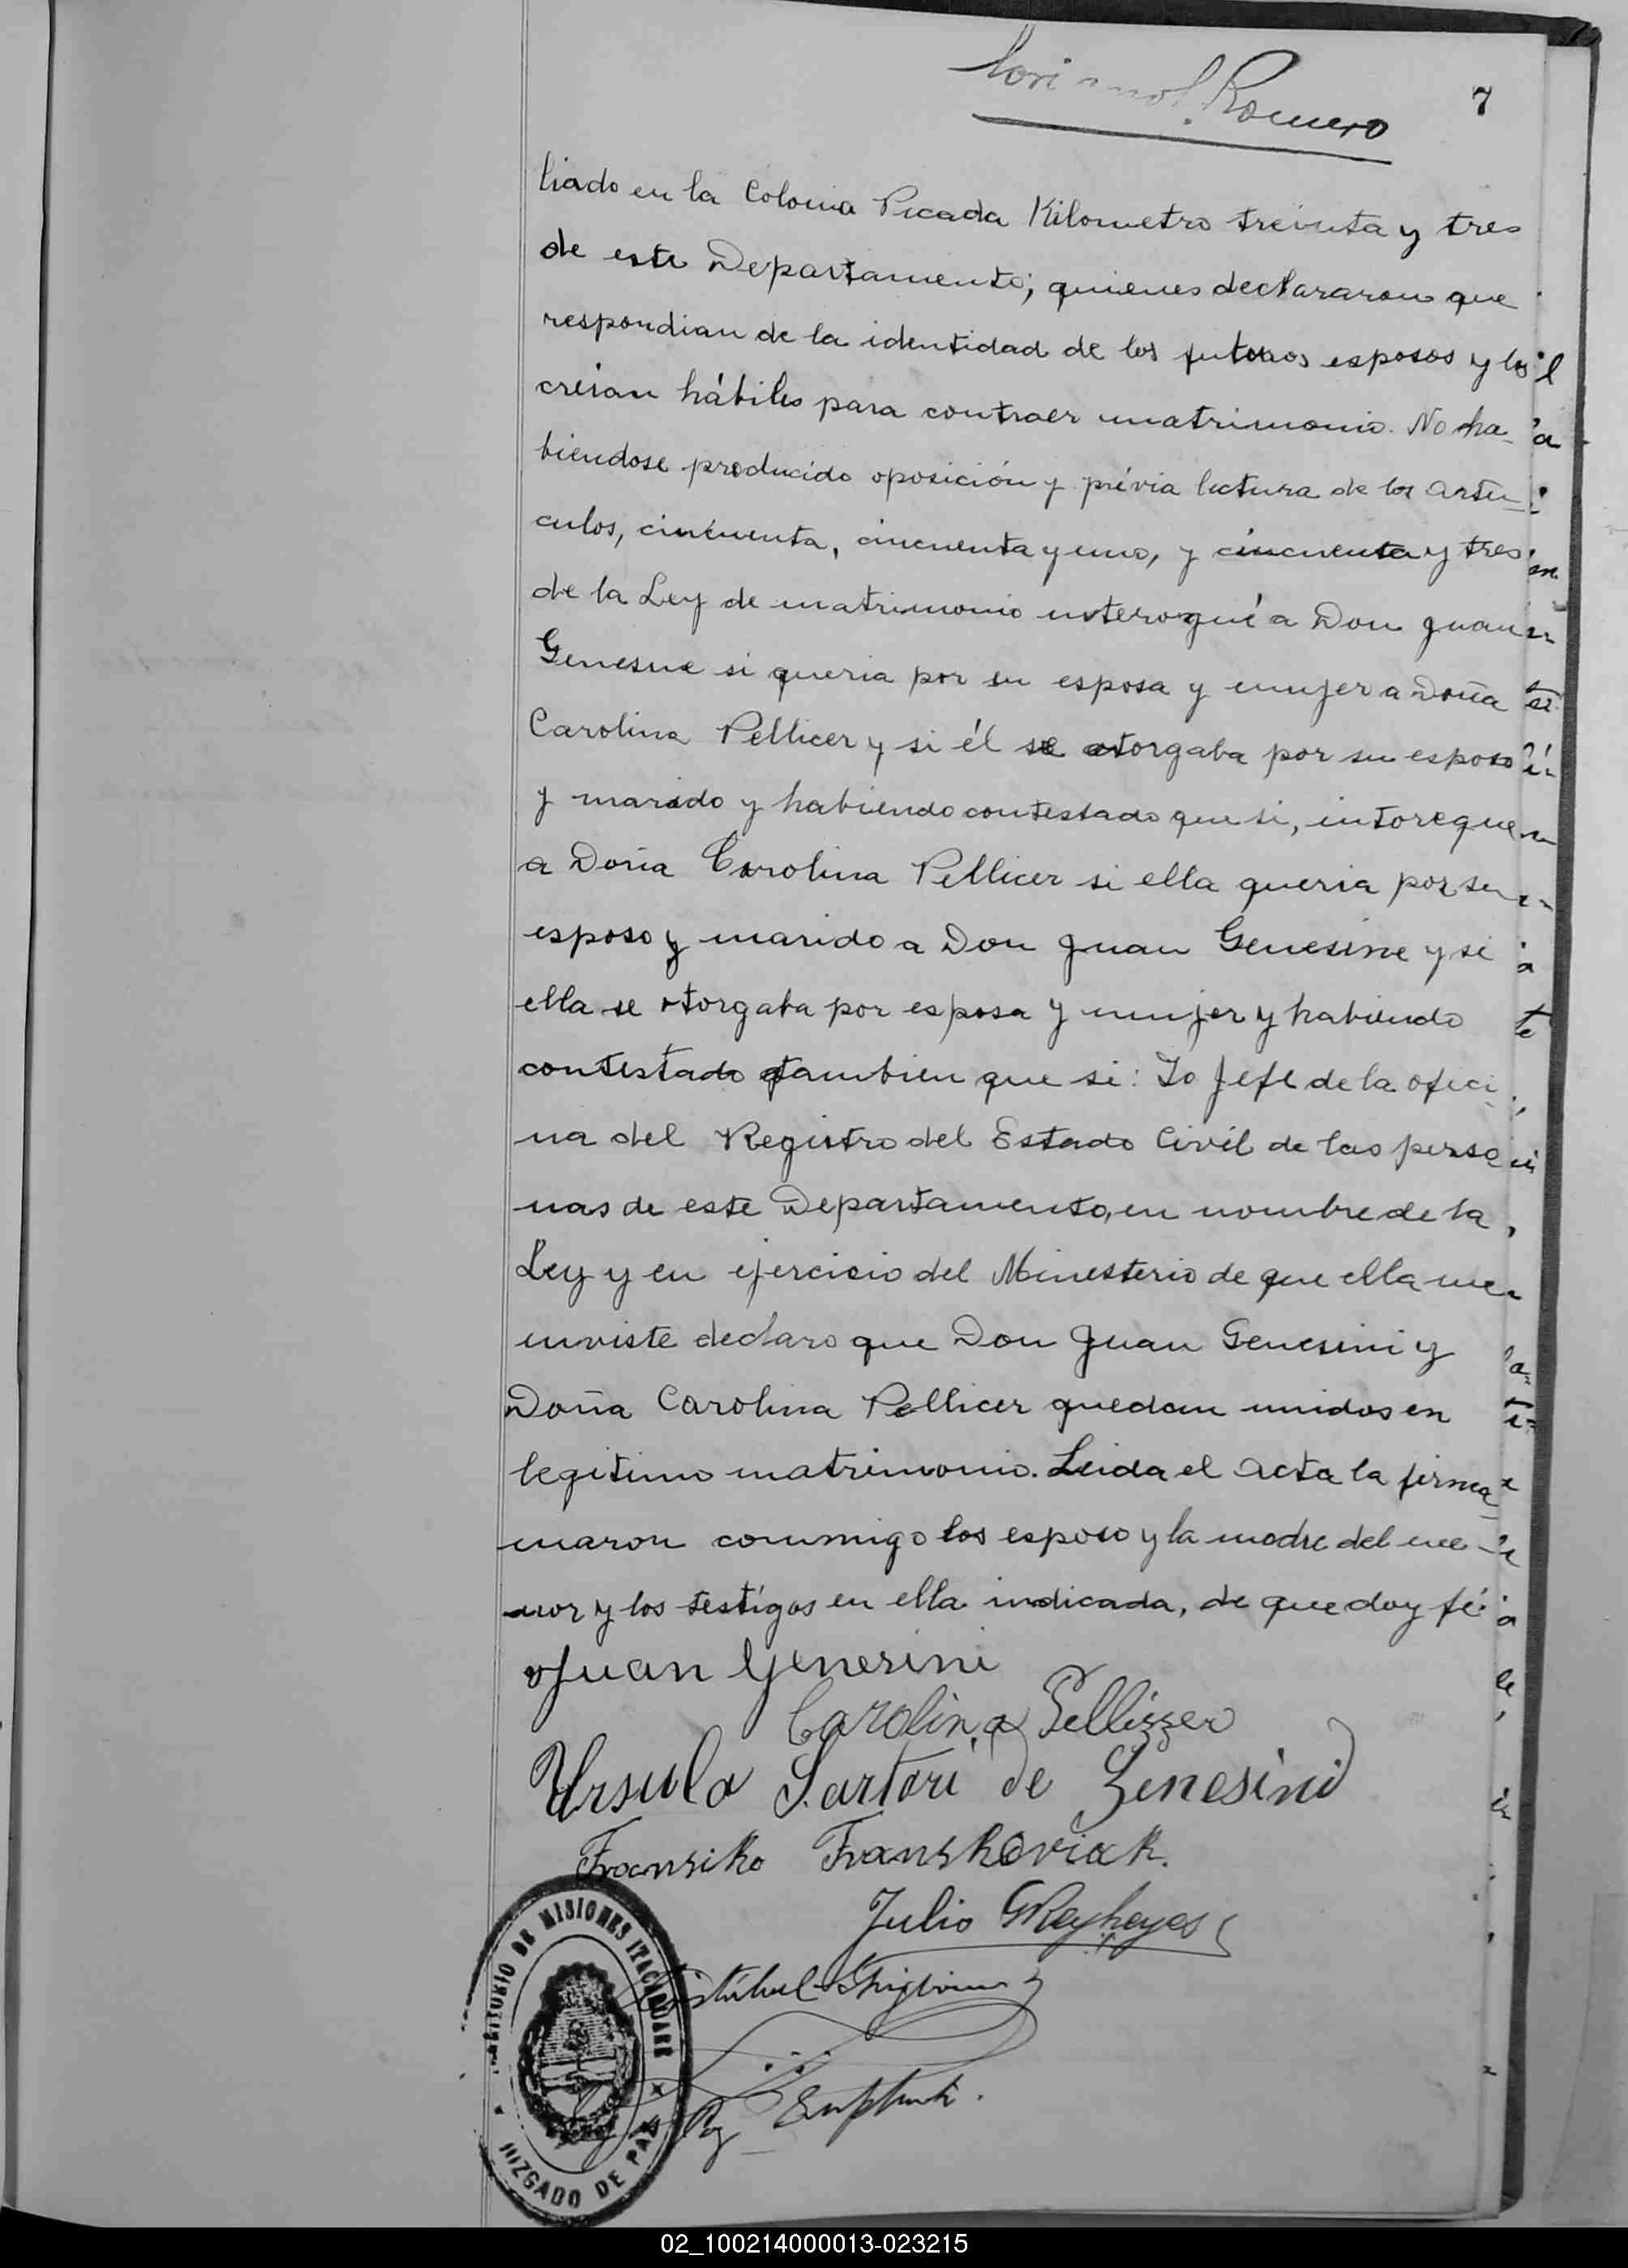 Romero
7
liado en la Colonia Picada Kilometro treinta y tres
de este Departamento; quienes declararon que
respondian de la identidad de los futuros esposos y los
creian hábiles para contraer matrimonio. No ha-
biendose producido oposición y prévia lectura de los artí-
culos, cincuenta, cincuenta y uno, y cincuenta y tres
de la Ley de matrimonio interogué a Don Juan
Genesine si queria por su esposa y mujer a Doña
Carolina Pellicer y si él se otorgaba por su esposo
y marido y habiendo contestado que si, intoreque
a Doña Carolina Pellicer si ella queria por su
esposo y marido a Don Juan Genesine y si
ella se otorgaba por esposa y mujer y habiendo
contestado tambien que si: Yo Jefe de la ofici
na del Registro del Estado Civil de las perso
nas de este Departamento, en nombre de la
Ley y en ejercicio del Ministerio de que ella me
inviste declaro que Don Juan Genesini y
Doña Carolina Pellicer quedan unidos en
legitimo matrimonio. Leida el acta la firma
maron commigo los esposo y la madre del me-
nor y los testigos en ella indicada, de que doy fé
Juan Genesini
Carolina Pellizzer
Ursula Sartori de Genesini
Fransiko Franskoviak.
Julio
TERRITORIO DE MISIONES ITACARUARE
JUZGADO DE PAZ
02_100214000013-023215